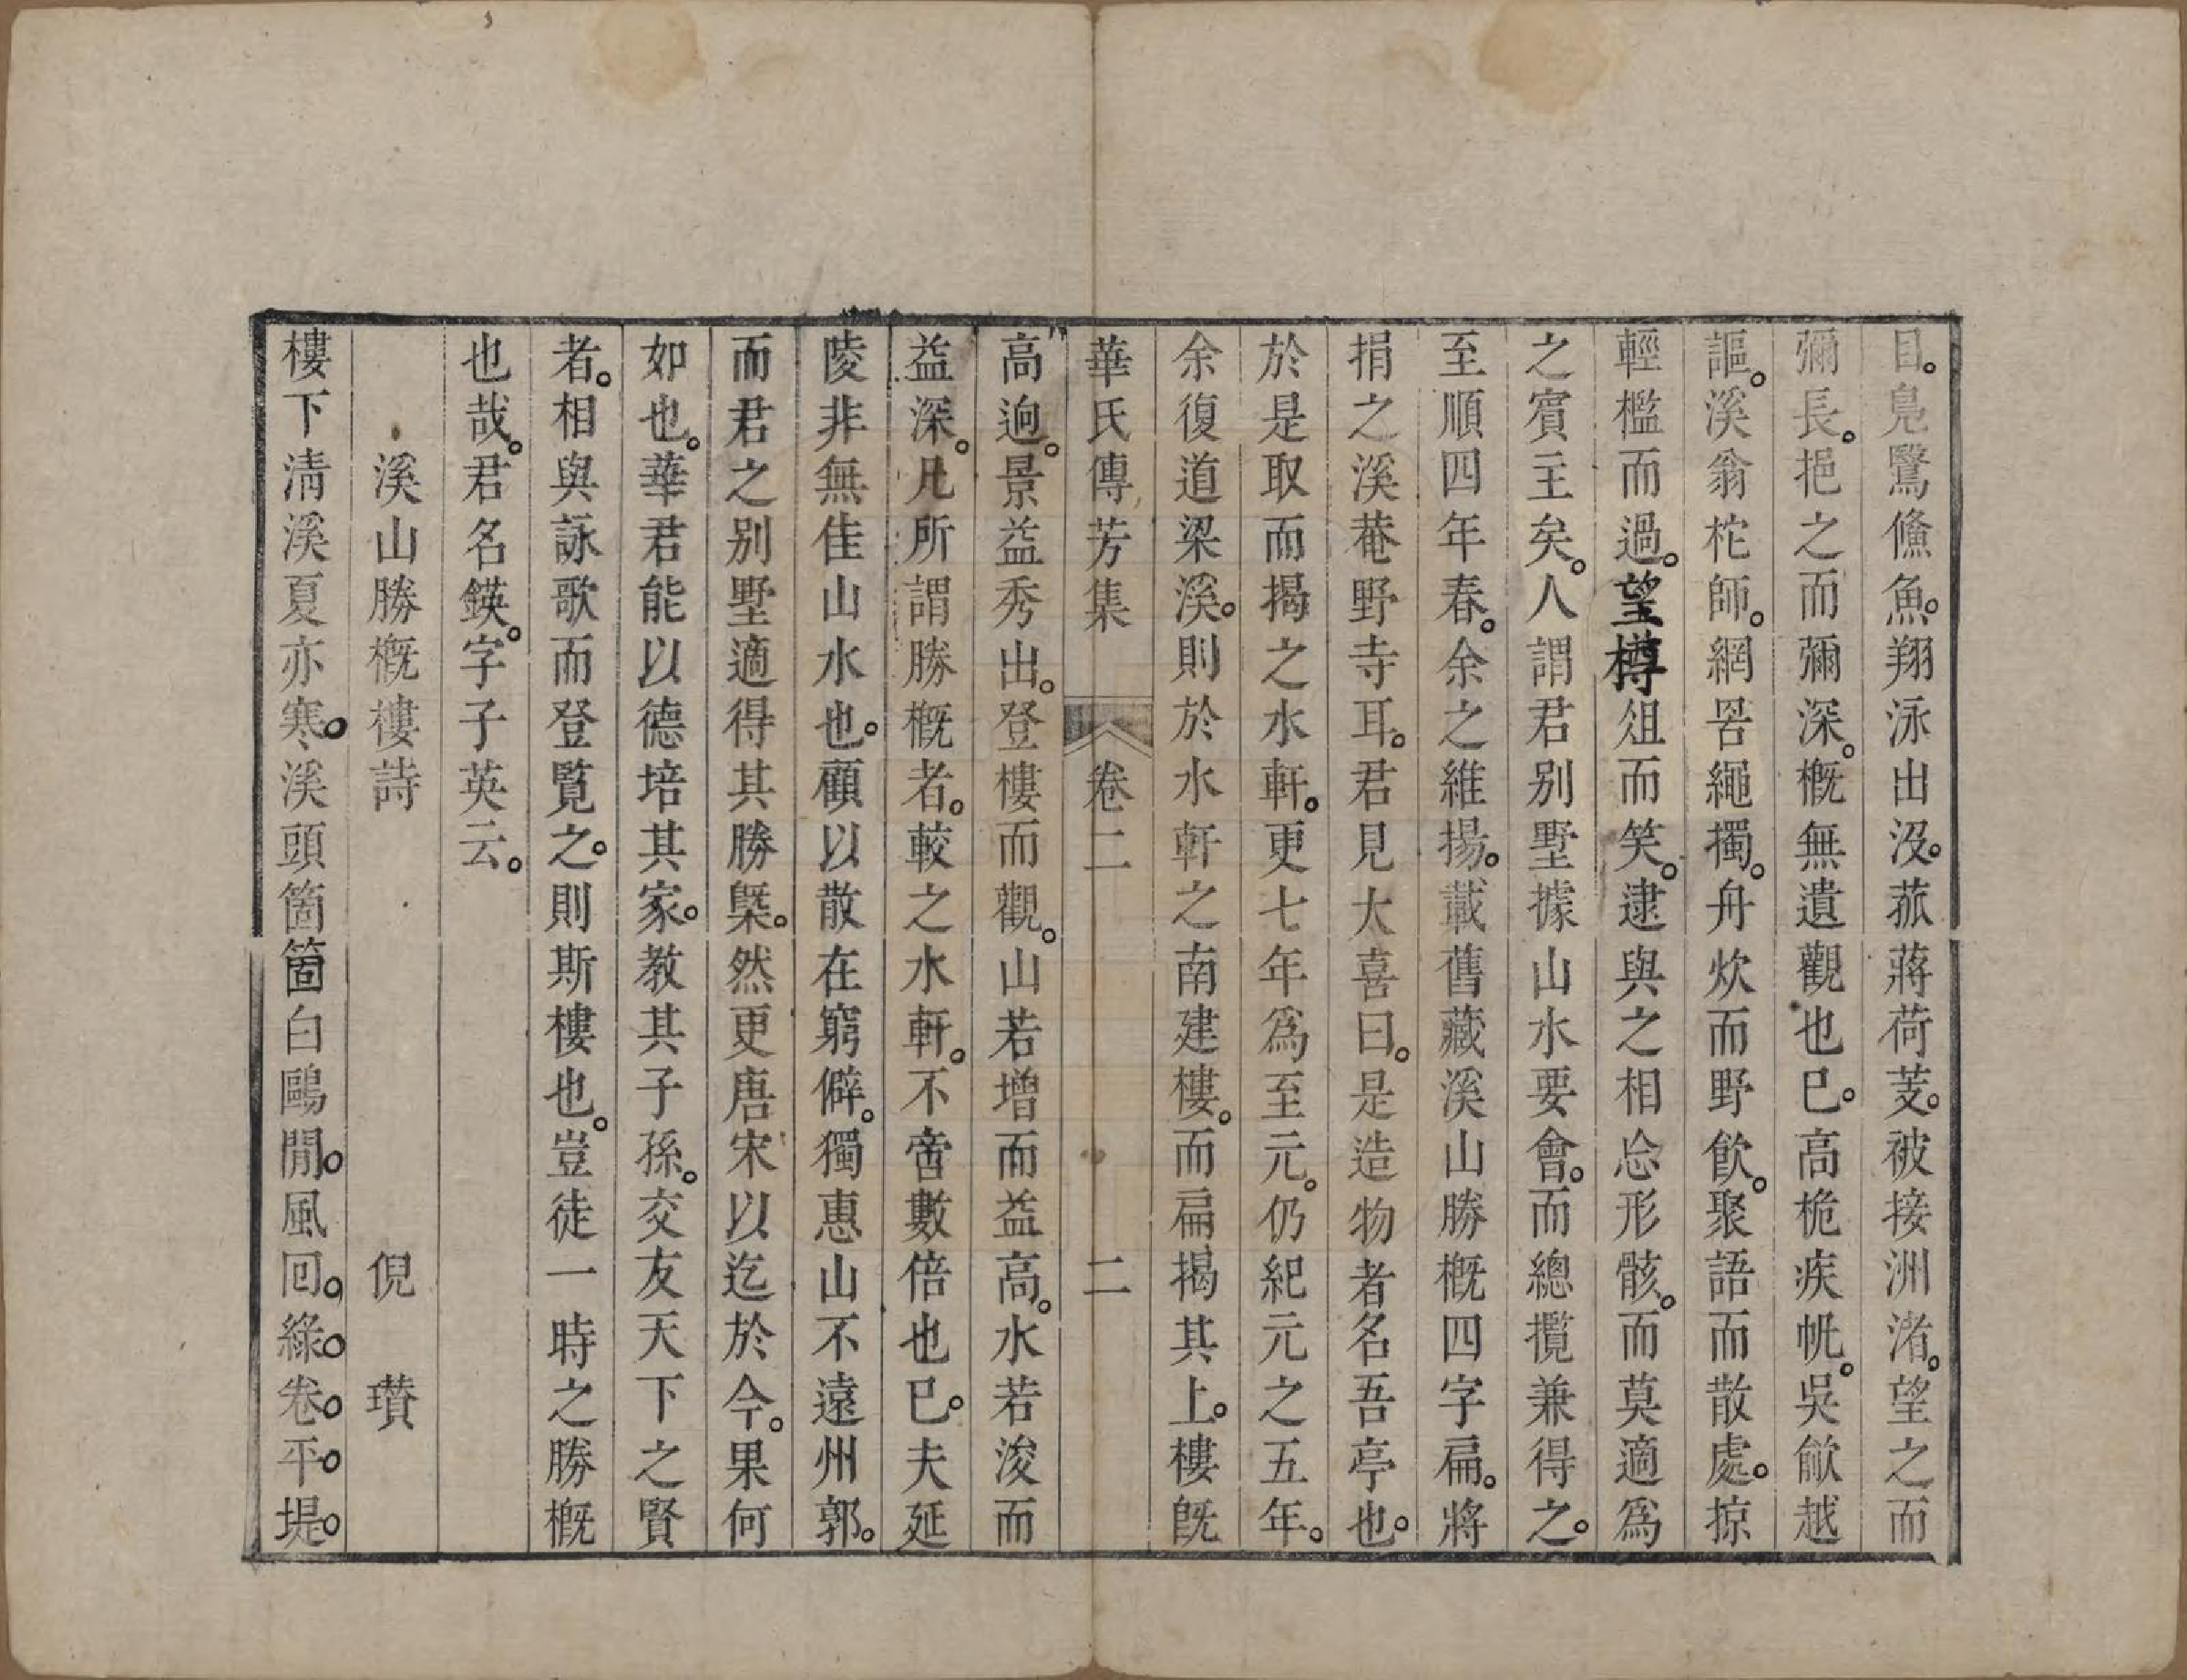 目。鳧鷖鯈魚。翔泳出沒。菰蔣荷芰。被接洲渚。望之而
彌長。挹之而彌深。概無遺觀也已。高桅疾帆。吳歈越
謳。溪翁柁師。網罟繩擉。舟炊而野飮。聚語而散處。掠
輕檻而過。望樽俎而笑。逮與之相忘形骸。而莫適爲
之賓主矣。人謂君别墅據山水要會。而總攬兼得之。
至順四年春。余之維揚。載舊藏溪山勝概四字扁。將
捐之溪菴野寺耳。君見大喜曰。是造物者名吾亭也。
於是取而揭之水軒。更七年爲至元。仍紀元之五年。
余復道梁溪。則於水軒之南建樓。而扁揭其上。樓旣
華氏傳芳集 卷二 二
高逈。景益秀出。登樓而觀。山若增而益高。水若浚而
益深。凡所謂勝概者。較之水軒。不啻數倍也已。夫延
陵非無佳山水也。顧以散在窮僻。獨惠山不遠州郭。
而君之别墅適得其勝槩。然更唐宋以迄於今。果何
如也。華君能以德培其家。教其子孫。交友天下之賢
者。相與詠歌而登覧之。則斯樓也。豈徒一時之勝概
也哉。君名鍈。字子英云。
溪山勝概樓詩 倪瓚
樓下淸溪夏亦寒。溪頭箇箇白鷗閒。風回。綠。卷。平。堤。